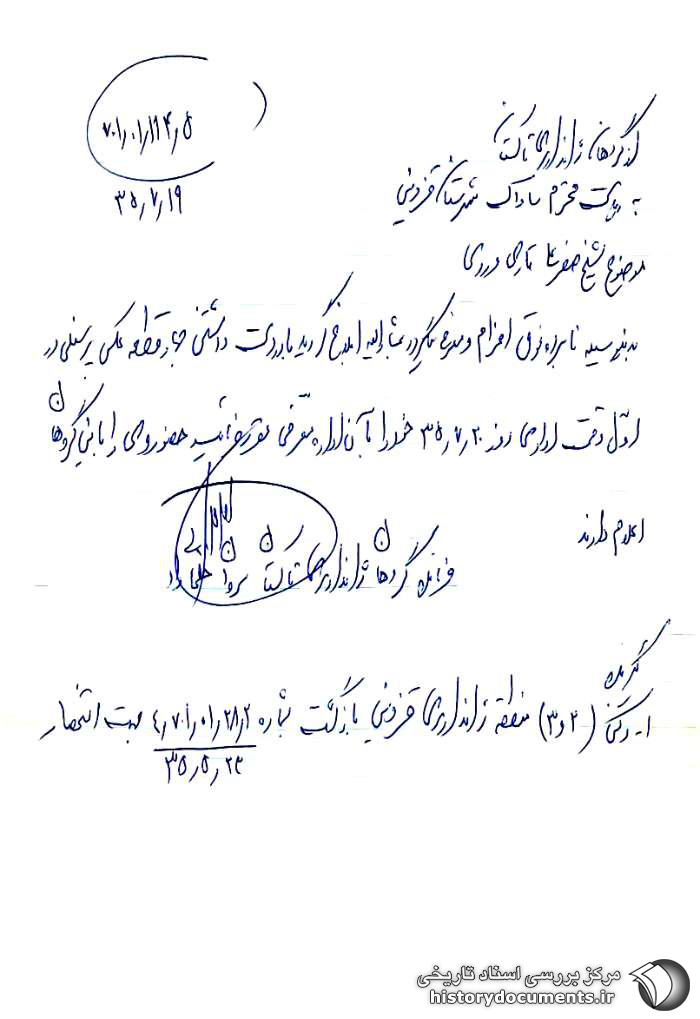 ۷۰۱٫۰۱٫۱۹۴٫۵
۳۵٫۷٫۱۹
از گردان ژاندارمری تاکستان
به ریاست محترم ساواک شهرستان قزوین
موضوع شیخ صفرعلی
بدینوسیله نامبرده فوق اعزام و ابلاغ گردید با در دست داشتن چهار قطعه عکس پرسنلی در
اول وقت اداری روز ۳۵٫۷٫۲۰ خود را به آن اداره معرفی مقرر فرمائید حضور وی را باین گروهان
اعلام دارند
فرمانده گردان ژاندارمری تاکستان سروان
گیرنده
۱- رکن (۲ و ۳) منطقه ژاندارمری قزوین بازگشت بشماره ۴٫۷۰۱٫۰۱٫۲۸٫۲ جهت استحضار
۳۵٫۵٫۲۳
مرکز بررسی اسناد تاریخی
historydocuments.ir